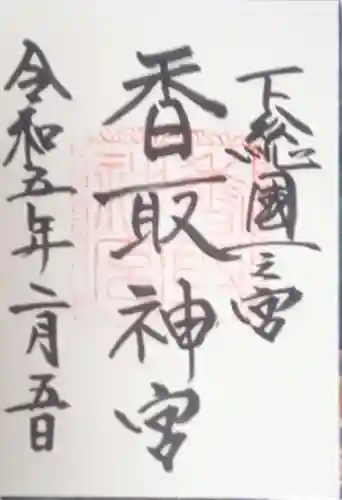 下総國一之宮
香取神宮
令和五年二月五日